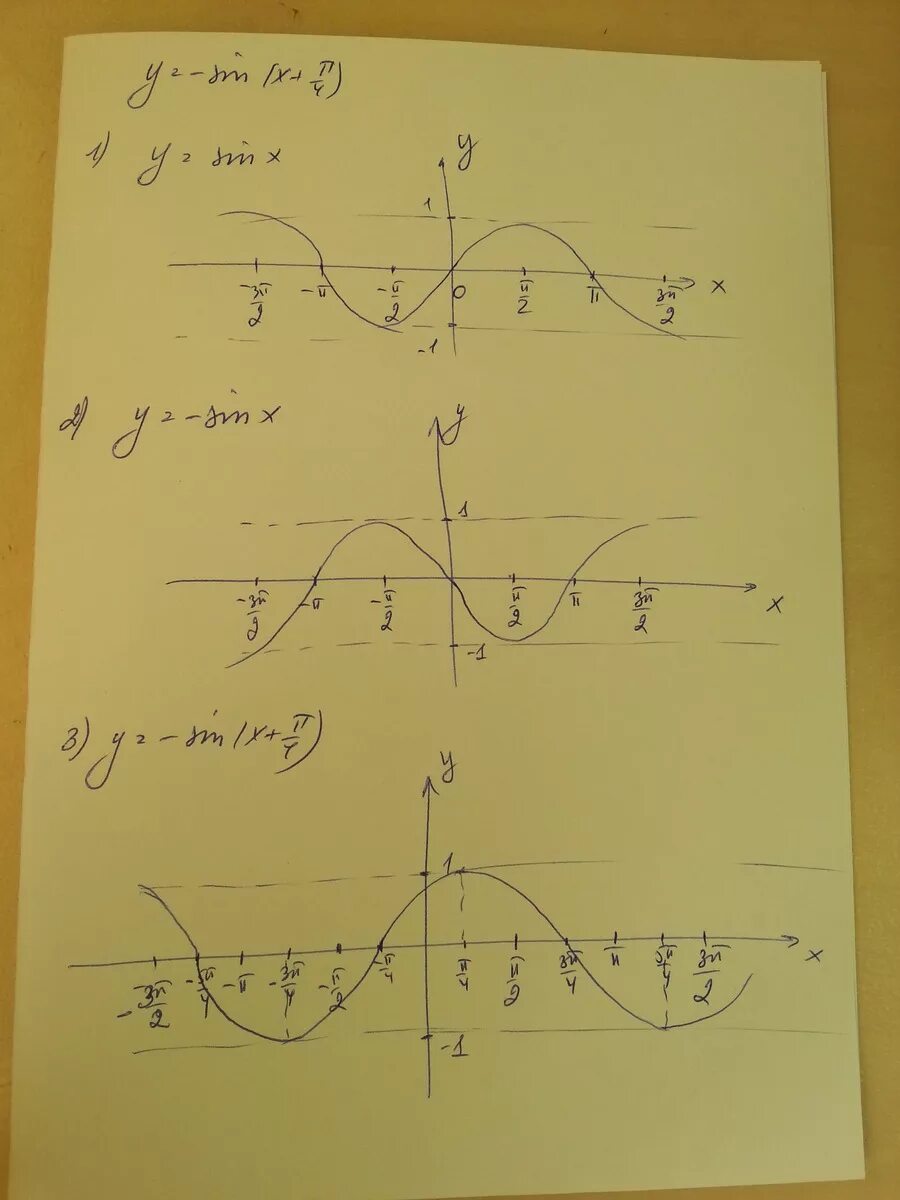 y = -sin(x + π/4)
1) y = sin x
y
1
-3π/2 -π -π/2 0 π/2 π 3π/2 x
-1
2) y = -sin x
y
1
-3π/2 -π -π/2 π/2 π 3π/2 x
-1
3) y = -sin(x + π/4)
y
1
-3π/2 -π -3π/4 -π/2 -π/4 π/4 π/2 3π/4 π 5π/4 3π/2 x
-1